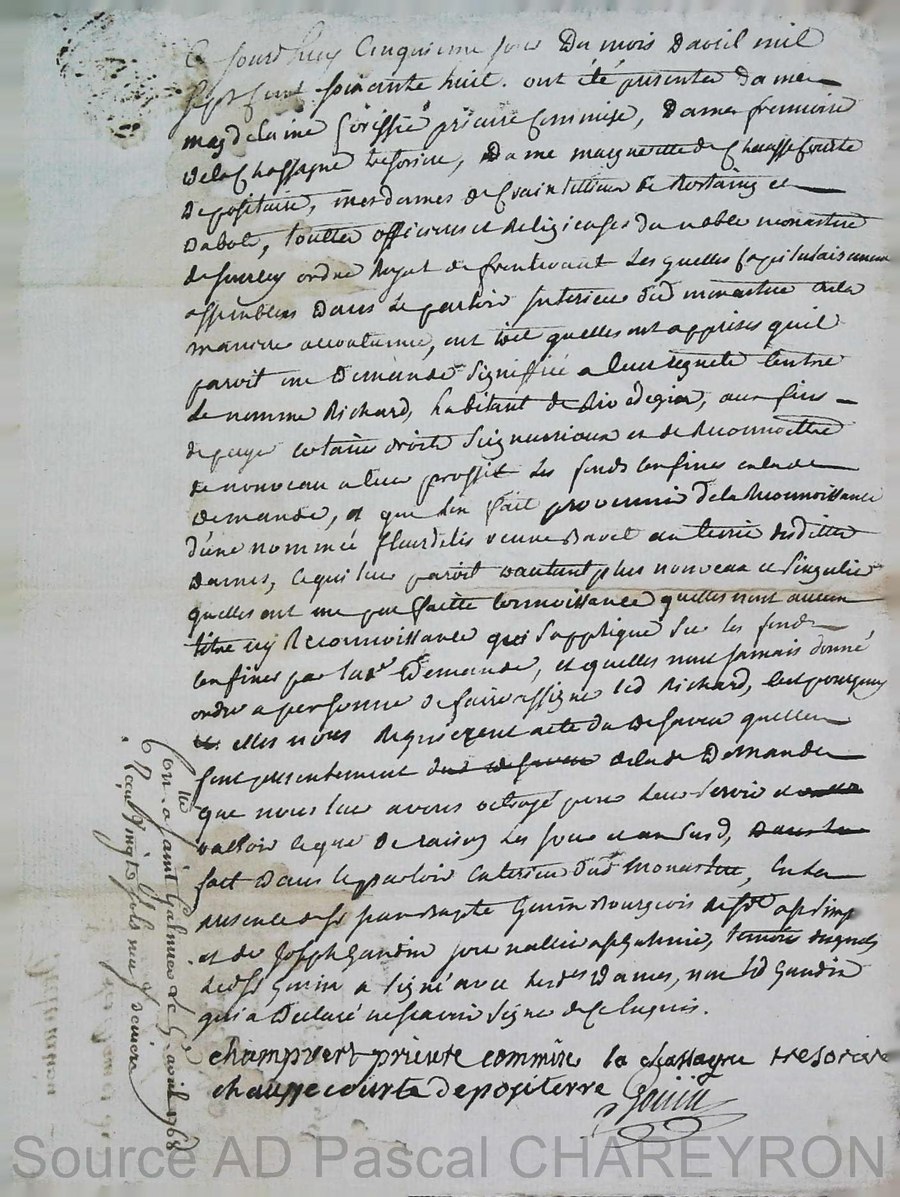 Ce jourdhuy Cinquieme jour Du mois Davril mil
sept cent soixante huit. ont été presentes Dame
magdelaine prieure Commise, Dame francoise
Dela Chassagne tresoriere, Dame marguerite de Chaussecourte
Depositaire, mesdames de de Rostaing et
Dabot, touttes officieres et Religieuses du noble monastere
de jourcey ordre Royal de frontevaut Les quelles Capitulairement
assemblées Dans Le parloir Interieur dud monastere dela
maniere accoutumée, ont dit quelles ont apprises quil
paroit une Demande signiffiée a leur requete Contre
Le nomme Richard, habitant de aux fins
de payer certains droits seigneuriaux et de Reconnoitre
de nouveau a leur proffit Les fonds Confinés en lade
Demande, et que lon fait provenir de la Reconnoissance
d'une nommée fleurdelis veuve au terrier desdittes
Dames, ce qui leur paroit dautant plus nouveau et singulier
quelles ont une parfaitte Connoissance quelles nont aucun
titre ny Reconnoissance qui sapplique sur les fonds
Confinés par lade Demande, et quelles nont jamais donné
ordre a personne de faire assigner led Richard, Cest pourquoy
elles nous Requierent acte du Desaveu quelles
font presentement du desaveu delade Demande
que nous leur avons octroyé pour leur servir et
valloir ce que de raison Les jour et an susd,
fait Dans le parloir interieur dud monastere, En la
presence de sr jean Bapte Gonin Bourgeois de
et de Joseph Gandin temoins
led sr Gonin a signé avec lesdes Dames, non led Gandin
qui a Declaré ne scavoir signer de ce Enquis.
champvert prieure commise la chassagne tresoriere
chaussecourte depositerre Gonin
Con. a Saint Galmier Le 6 avril 1768
Recu Vingt Sols neuf deniers
Source AD Pascal CHAREYRON